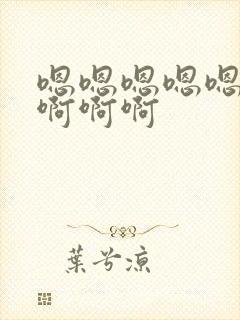 嗯嗯嗯嗯嗯
啊啊啊
葉兮涼